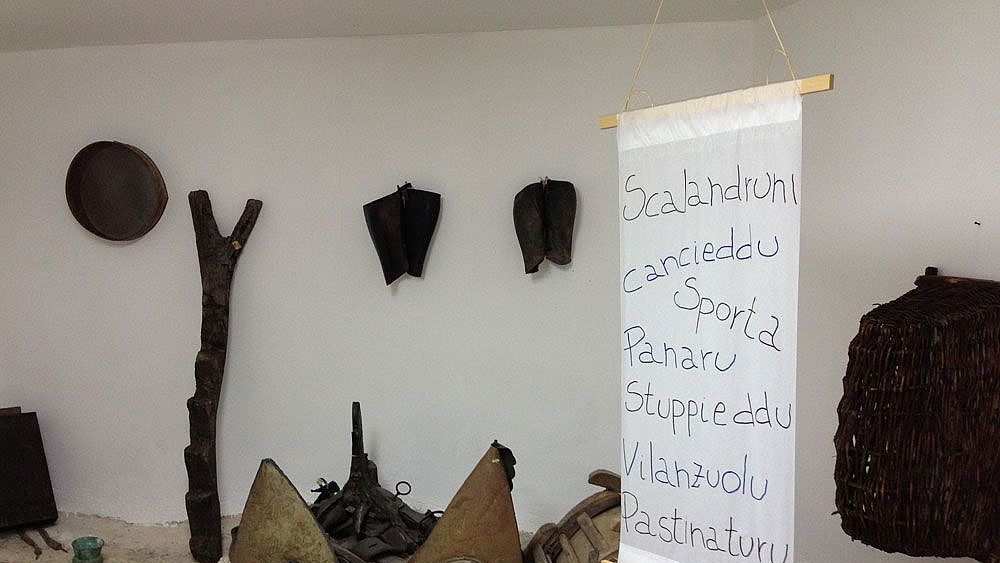 Scalandruni
cancieddu
Sporta
Panaru
Stuppieddu
Vilanzuolu
Pastinaturu